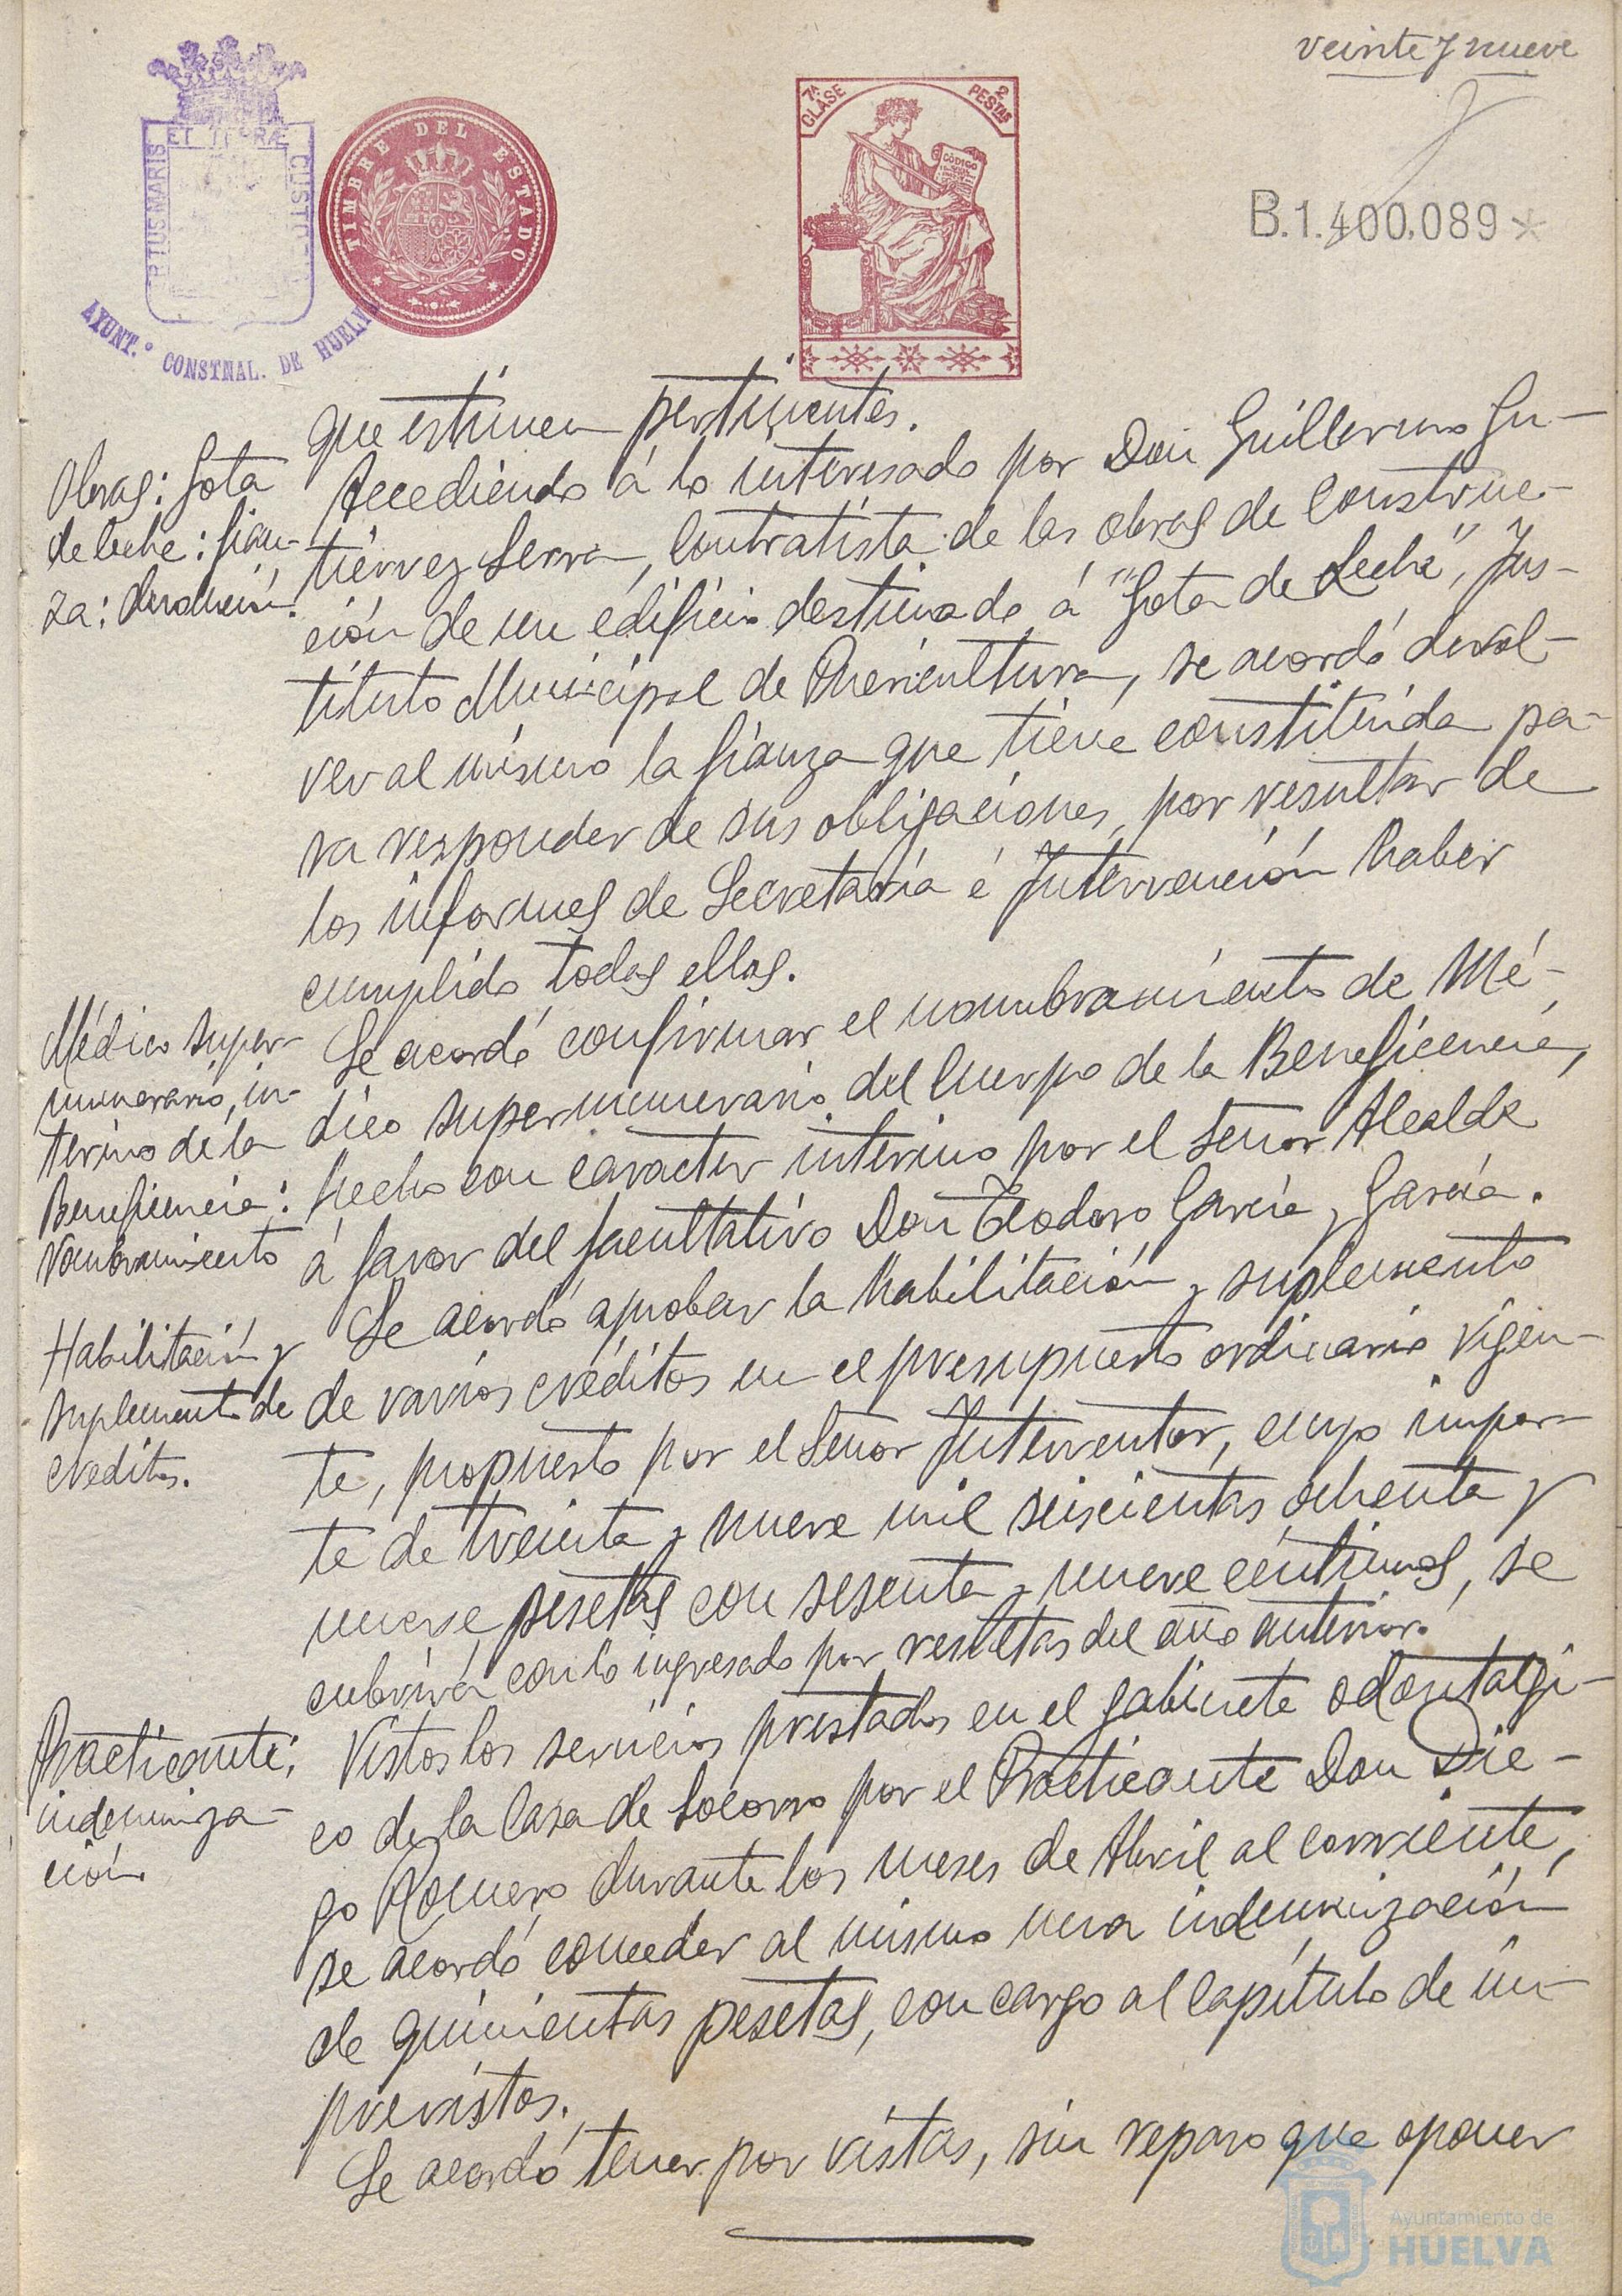 veinte y nueve
ET TERRÆ
P TUS MARIS
CUSTO
AYUNT.º CONSTNAL. DE HUELVA
TIMBRE DEL ESTADO
7ª CLASE
2 PESTAS
CÓDIGO
B.1.400.089*
que estimen pertinentes.
Obras: Gota
de leche: fian-
za: devolución.
Accediendo á lo interesado por Don Guillermo Gu-
tiérrez Serra, Contratista de las obras de Construc-
ción de un edificio destinado á "Gota de Leche", Ins-
tituto Municipal de Puericultura, se acordó devol-
ver al mismo la fianza que tiene constituída pa-
ra responder de sus obligaciones, por resultar de
los informes de Secretaría é Intervención haber
cumplido todas ellas.
Médico super-
numerario, in-
terino de la
Beneficencia:
Nombramiento
Se acordó confirmar el nombramiento de Mé-
dico supernumerario del Cuerpo de la Beneficencia,
hecho con caracter interino por el Señor Alcalde
á favor del facultativo Don Teodoro García y García.
Habilitación y
suplemento de
creditos.
Se acordó aprobar la habilitación y suplemento
de varios créditos en el presupuesto ordinario vigen-
te, propuesto por el Señor Interventor, cuyo impor-
te de treinta y nueve mil seiscientas ochenta y
nueve pesetas con sesenta y nueve céntimos, se
cubrirá con lo ingresado por resultas del año anterior.
Practicante:
indemniza-
ción.
Vistos los servicios prestados en el gabinete odontalgi-
co de la Casa de Socorro por el Practicante Don Die-
go Romero durante los meses de Abril al corriente,
se acordó conceder al mismo una indemnización
de quinientas pesetas, con cargo al Capítulo de im-
previstos.
Se acordó tener por vistas, sin reparo que oponer
Ayuntamiento de
HUELVA